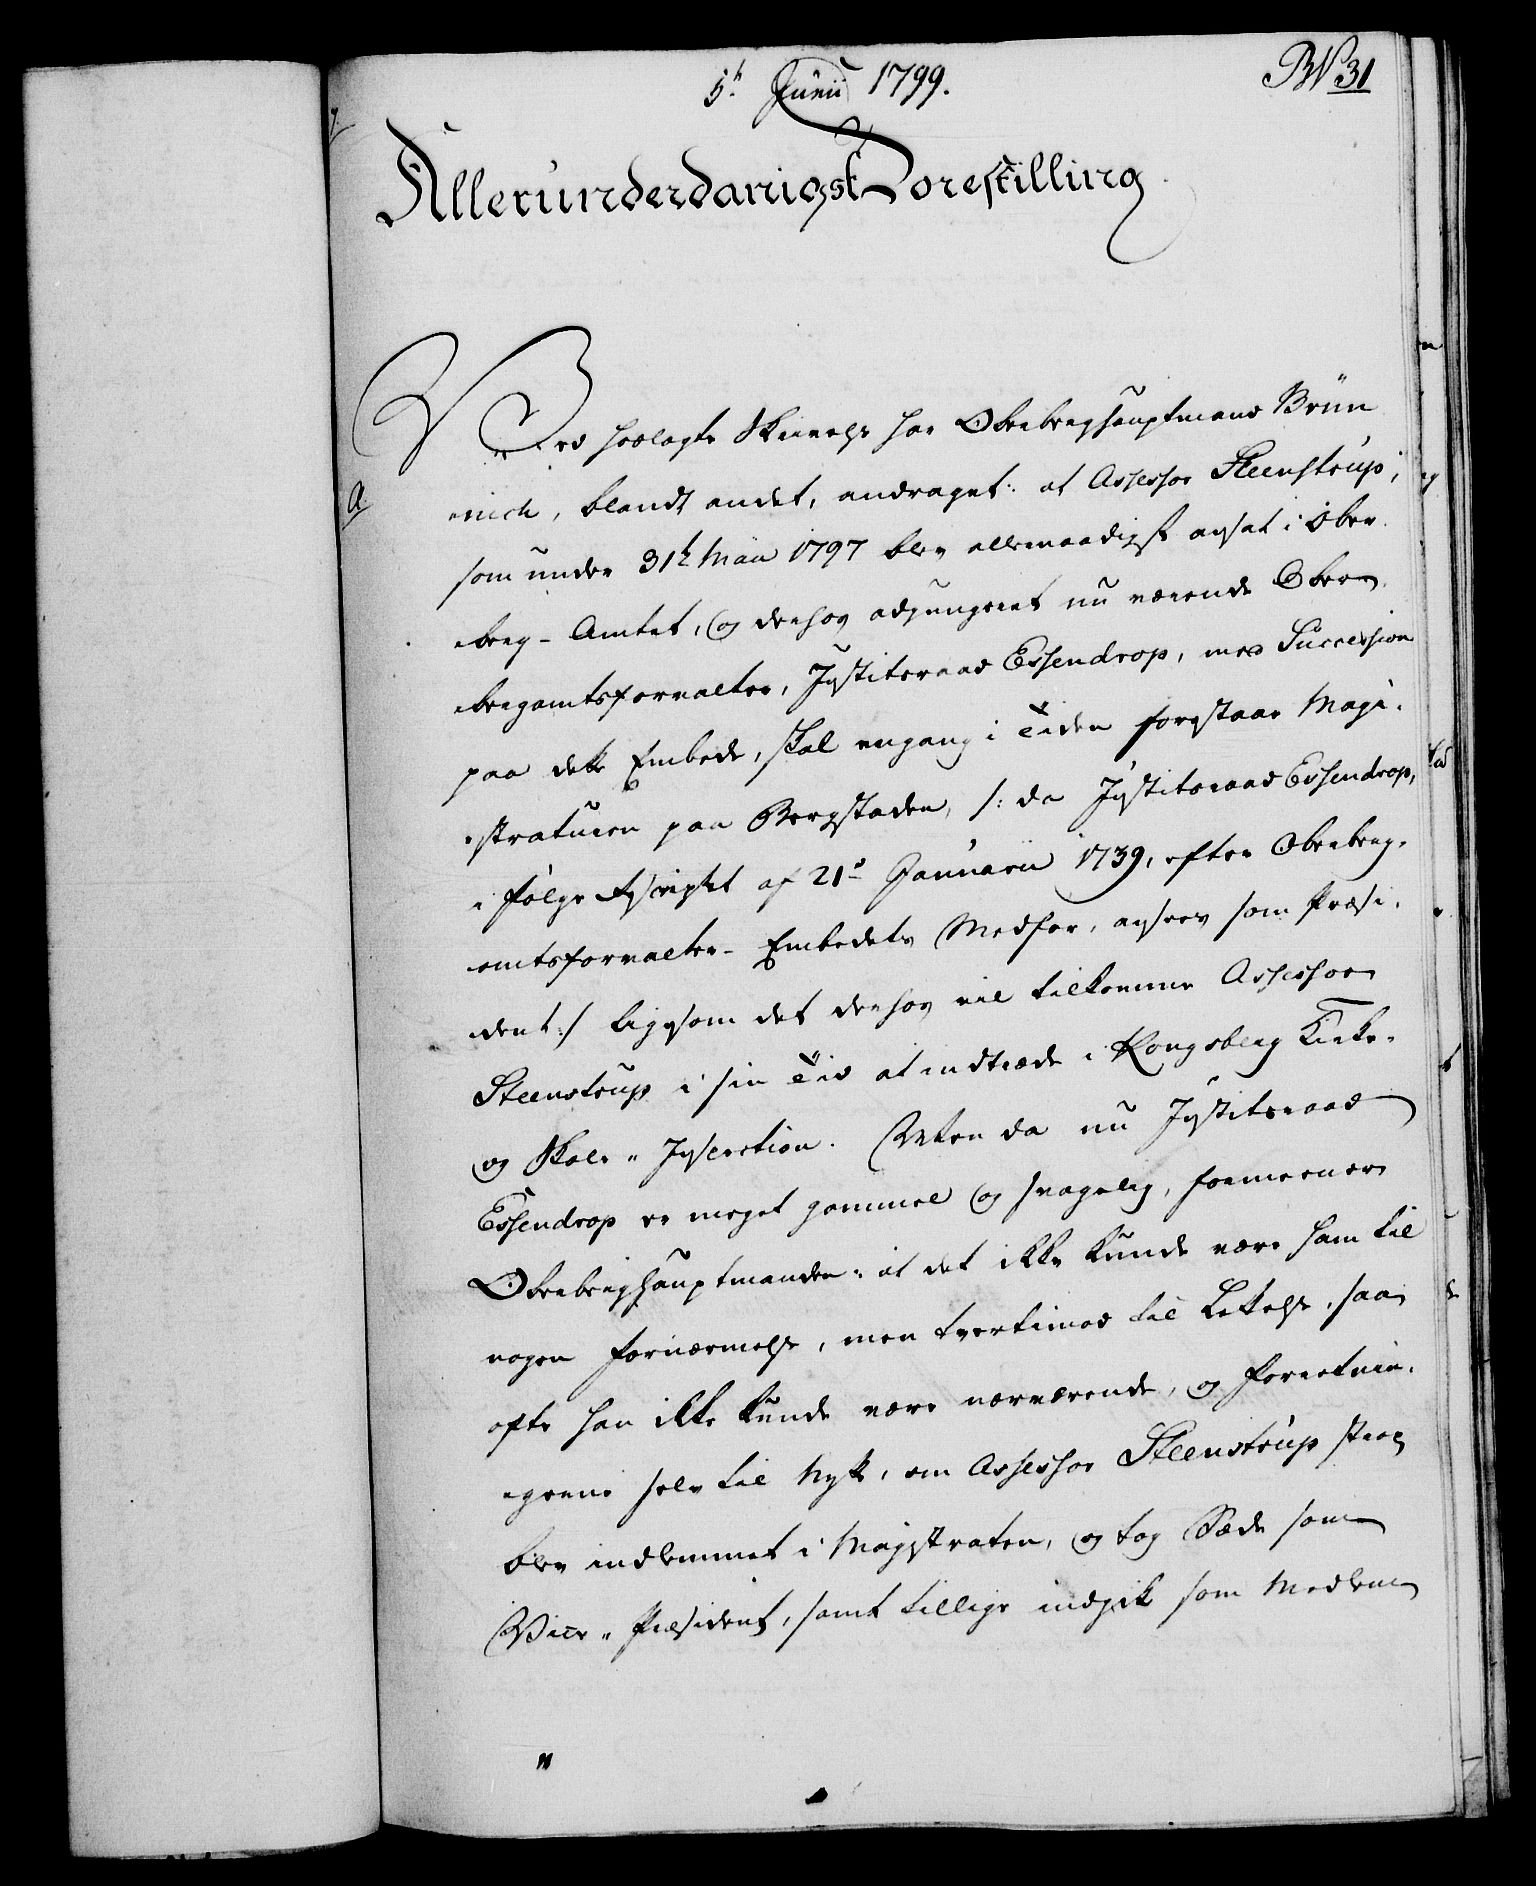 5t Junii 1799.
No 31
Allerunderdanigst Forestilling
Ved hoslagte Skrivelse har Oberberghauptmand Brün
a.
nich, blandt andet, andraget: at Assessor Steenstrup,
som under 31t Maii 1797 blev allernaadigst ansat i Ober
berg-Amtet, og derhos adjungeret nu værende Ober
bergamtsforvalter, Justitsraad Essendrop, med Succession
paa dette Embede, skal engang i Tiden forestaae Magi-
straturen paa Bergstaden, /: da Justitsraad Essendrop,
i følge Rescript af 21de Januarii 1739, efter Oberberg-
amtsforvalter-Embedets Medfør, ansees som Præsi-
dent:/ ligesom det derhos vil tilkomme Assessor
Steenstrup i sin Tid at indtræde i Kongsberg Kirke-
og Skole-Inspection. Men da nu Justitsraad
Essendrop er meget gammel og svagelig, formeener
Oberberghauptmanden: at det ikke kunde være ham til
nogen Fornærmelse, men tvertimod til Lettelse, saa
ofte han ikke kunde være nærværende, og Forretnin-
gerne selv til Nytte, om Assessor Steenstrup strax
blev indlemmet i Magistraten, og tog Sæde som
Vice-Præsident, samt tillige indgik som Medlem